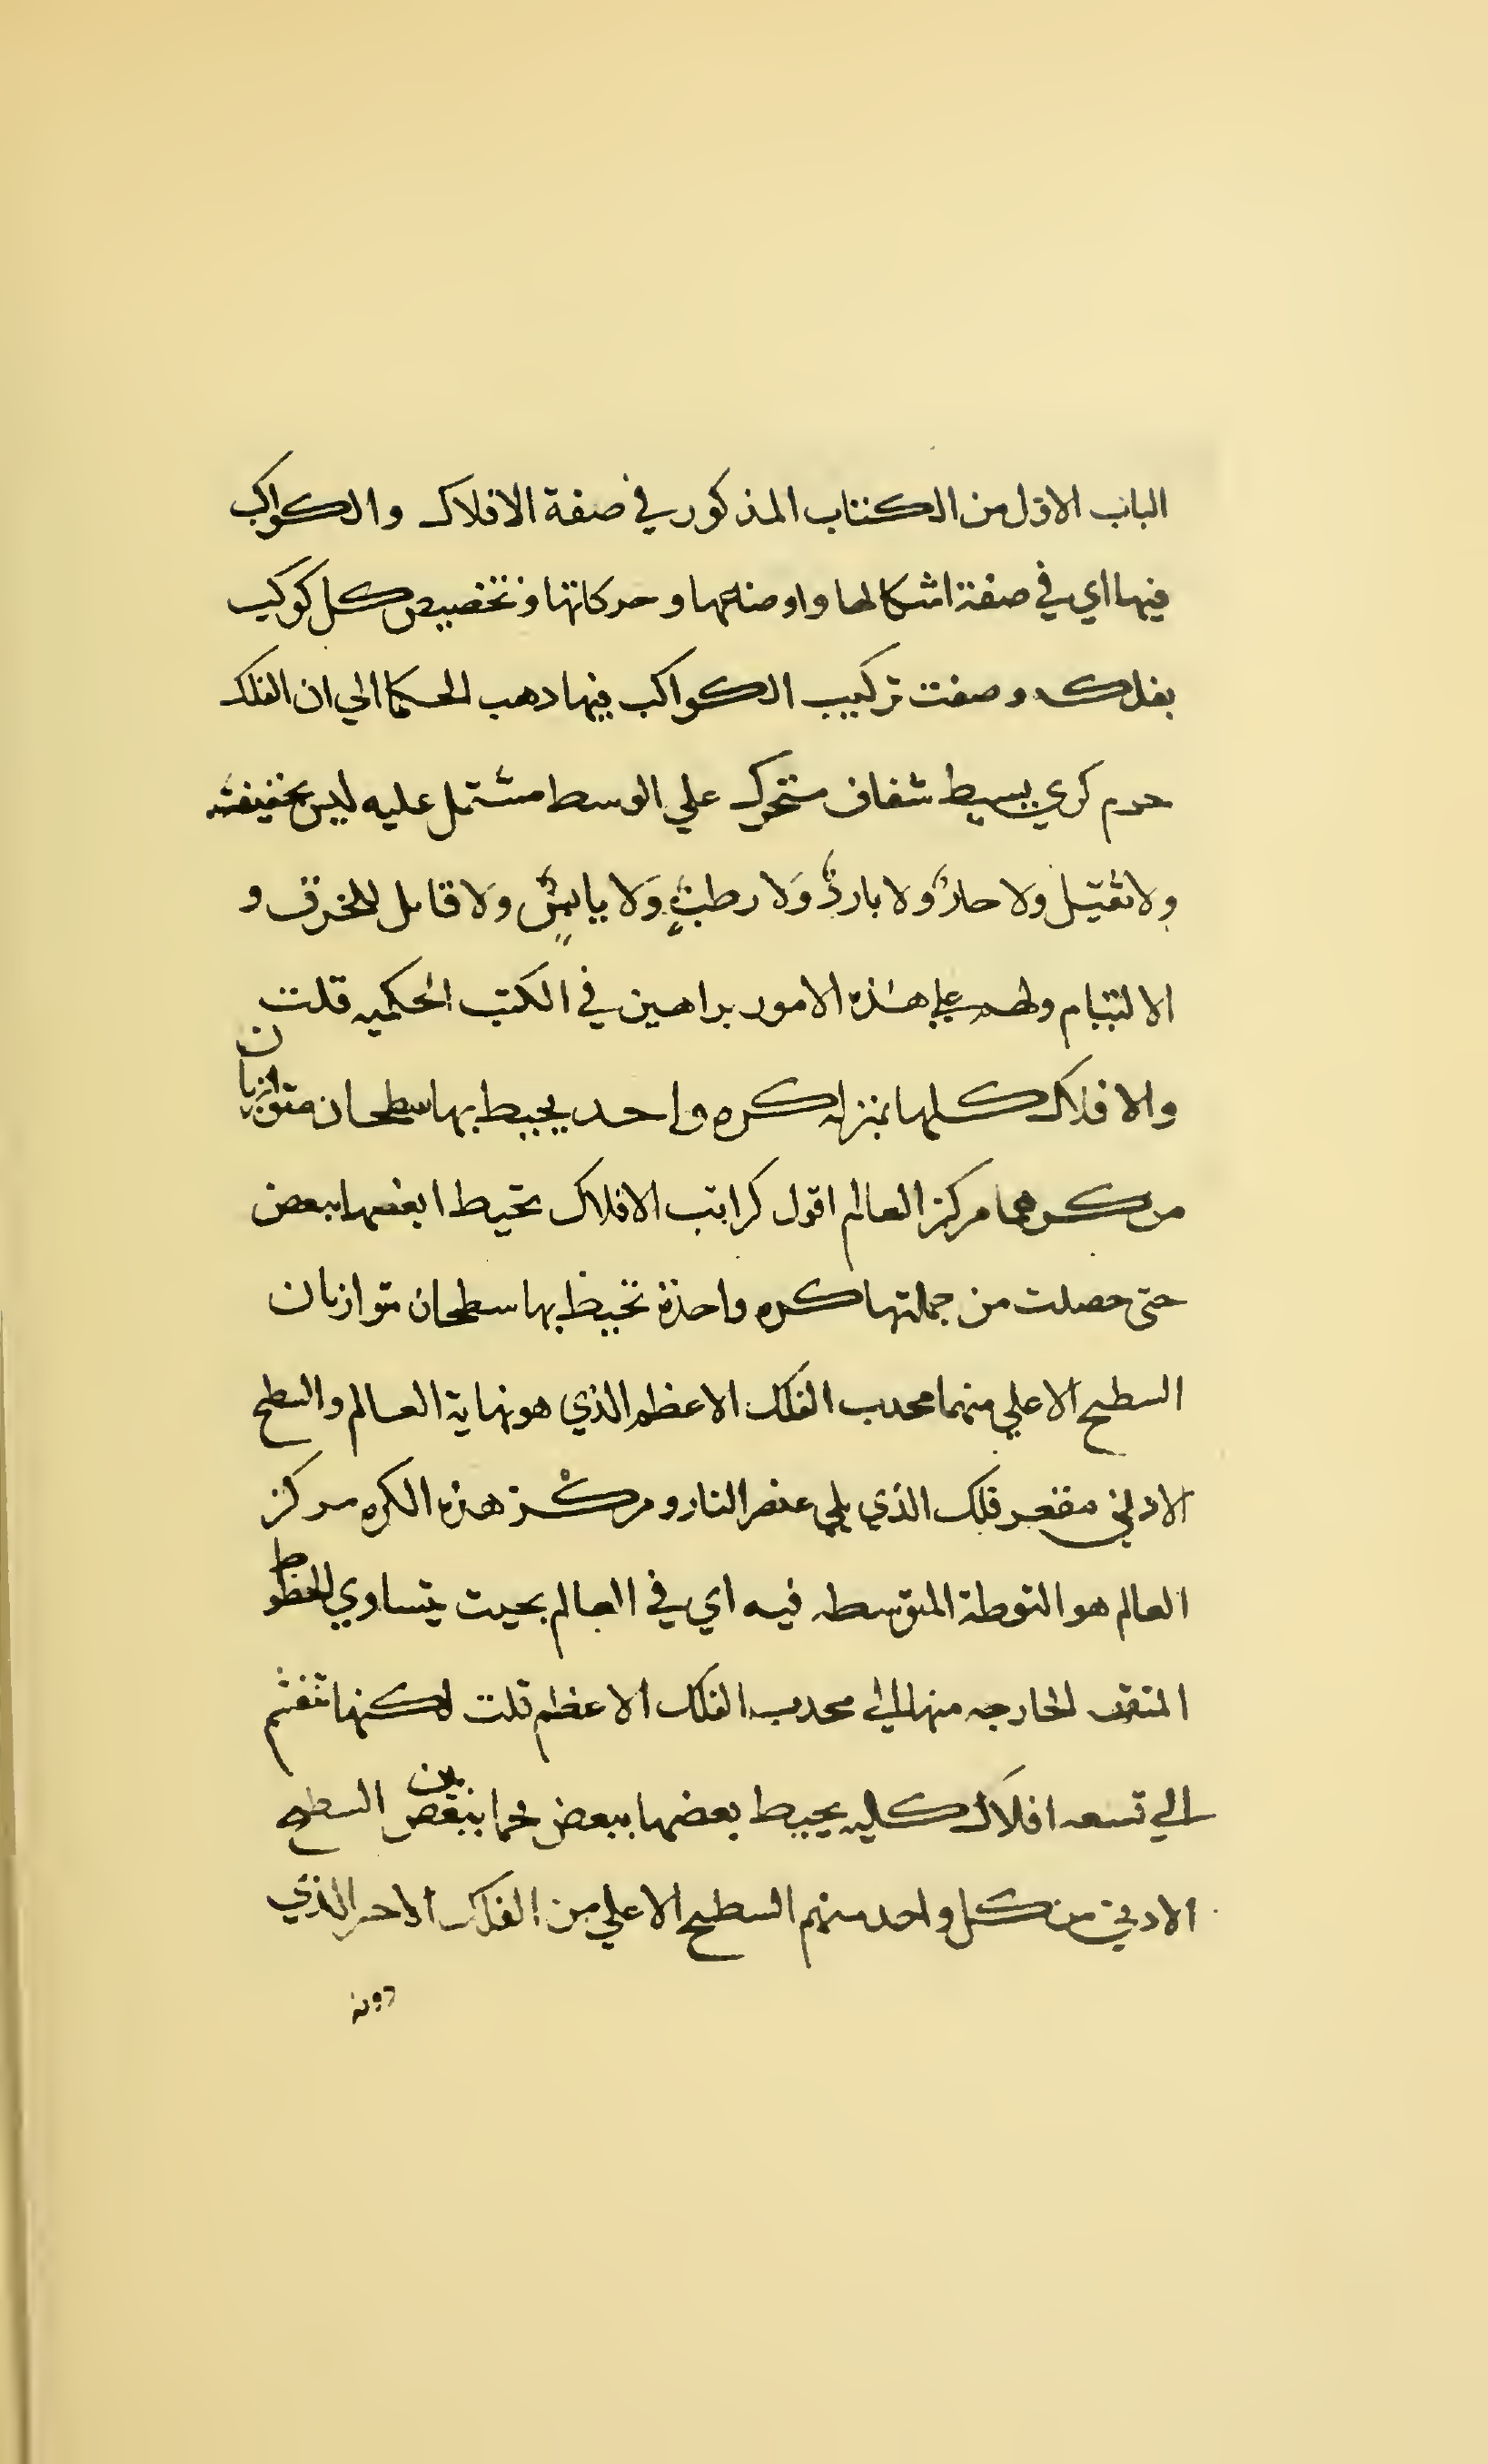 الباب الاول من الكتاب المذكور في صفة الافلاك والكواكب
فيها اي في صفة اشكالها واوضاعها وحركاتها وتخصيص كل كوكب
بفلكه وصفت تركيب الكواكب فيها دهب الحكما الي ان الفلك
جرم كري بسيط شفاف متحرك علي الوسط مشتمل عليه ليس بخفيف
ولا ثقيل ولا حار ولا بارد ولا رطب ولا يابس ولا قابل للخرق و
الالتيام ولهم علي هذه الامور براهين في الكتب الحكميه قلت
والافلاك كلها بمنزله كره واحد يحيط بها سطحان متوازيان
مركزهما مركز العالم اقول كراتب الافلاك تحيط ابعضها ببعض
حتى حصلت من جملتها كره واحدة تحيط بها سطحان متوازيان
السطح الاعلي منهما محدب الفلك الاعظم الذي هو نهاية العالم والسطح
الادني مقعر فلك الذي يلي عنصر النار ومركز هذه الكره مركز
العالم هو النوطة المتوسطه فيه اي في العالم بحيت يتساوي الخطوط
الخارجه منها الي محدب الفلك الاعظم قلت لكنها تنقسم
الي تسعه افلاك كليه يحيط بعضها ببعض السطح
الادني من كل واحد منهم السطح الاعلي من الفلك الاخر الذي
دونه